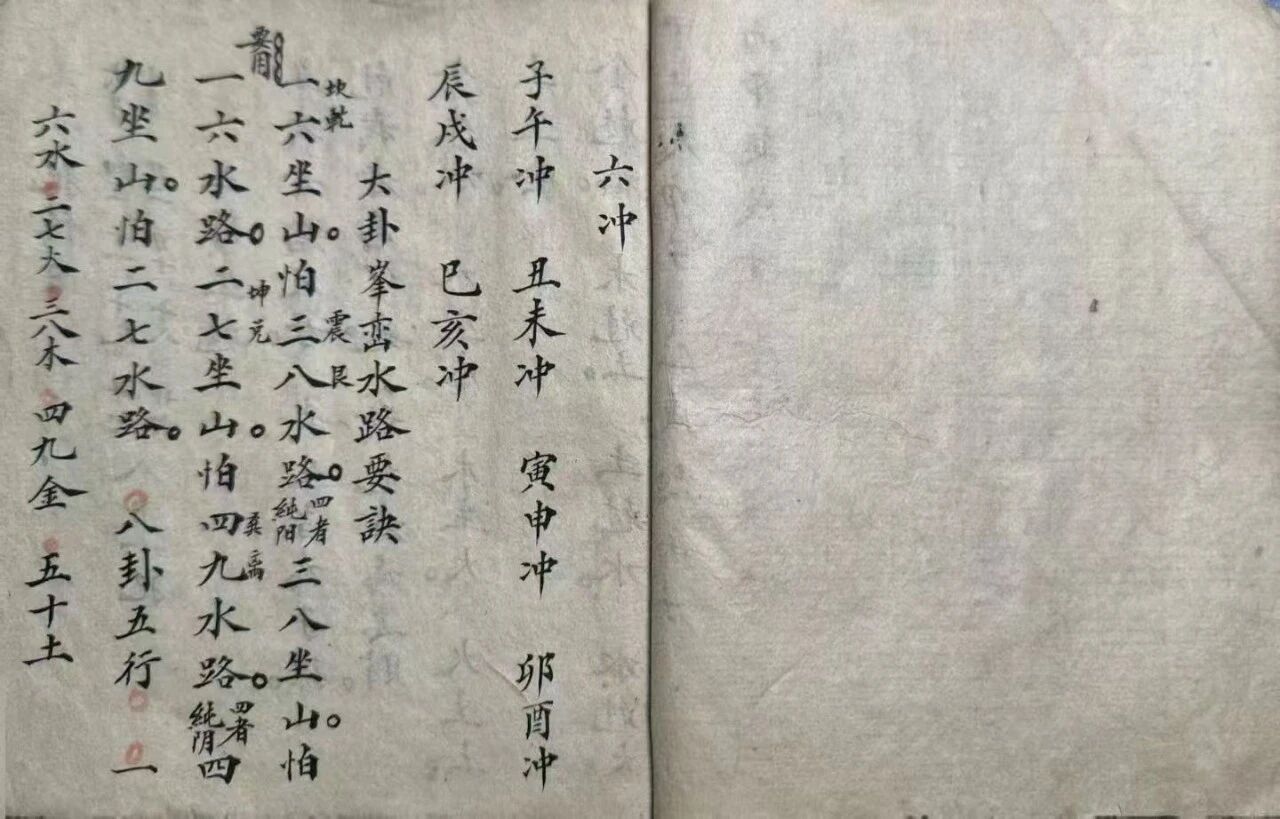 六冲
子午冲 丑未冲 寅申冲 卯酉冲
辰戌冲 巳亥冲
大卦峯峦水路要訣
坎乾 震艮
一六坐山。怕三八水路。四者純阳三八坐山。怕
一六水路。二七坐山。怕四九水路。四者純阴四
坤兑 巽离
九坐山。怕二七水路。 八卦五行 一
六水 二七火 三八木 四九金 五十土